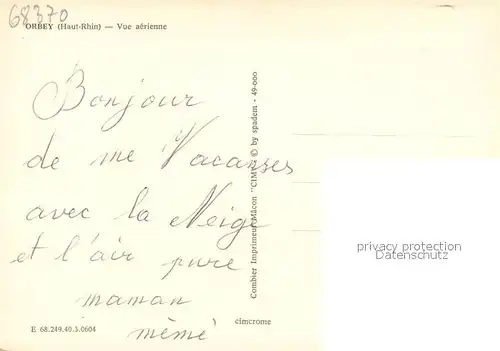 68370
ORBEY (Haut-Rhin) — Vue aérienne
Bonjour
de me Vacanses
avec la Neige
et l'air pure
maman
mémé
Combier Imprimeur Mâcon "CIM" © by spadem - 49-000
E 68.249.40.5.0604
cimcrome
privacy protection
AK-Ansichtskarten.de